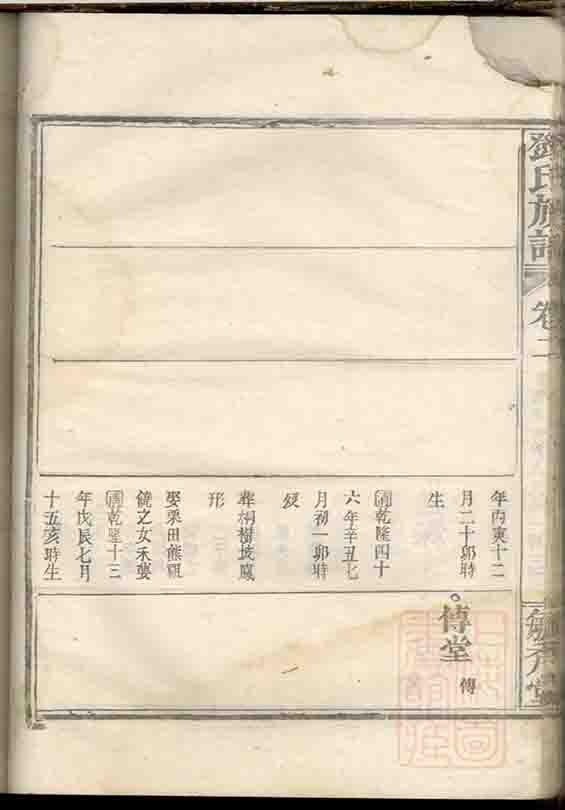 鄧氏族譜
卷二
年丙寅十二
月二十卯時
生
清乾隆四十
六年辛丑七
月初一卯時
歿
葬桐樹坡鳳
形
娶栗田熊
鏡之女禾婆
清乾隆十三
年戊辰七月
十五亥時生
傳堂
傳
堂